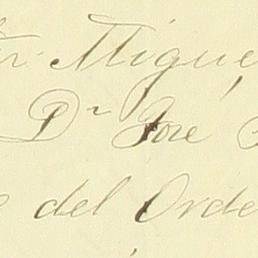 Migue
Dn José
del Orde